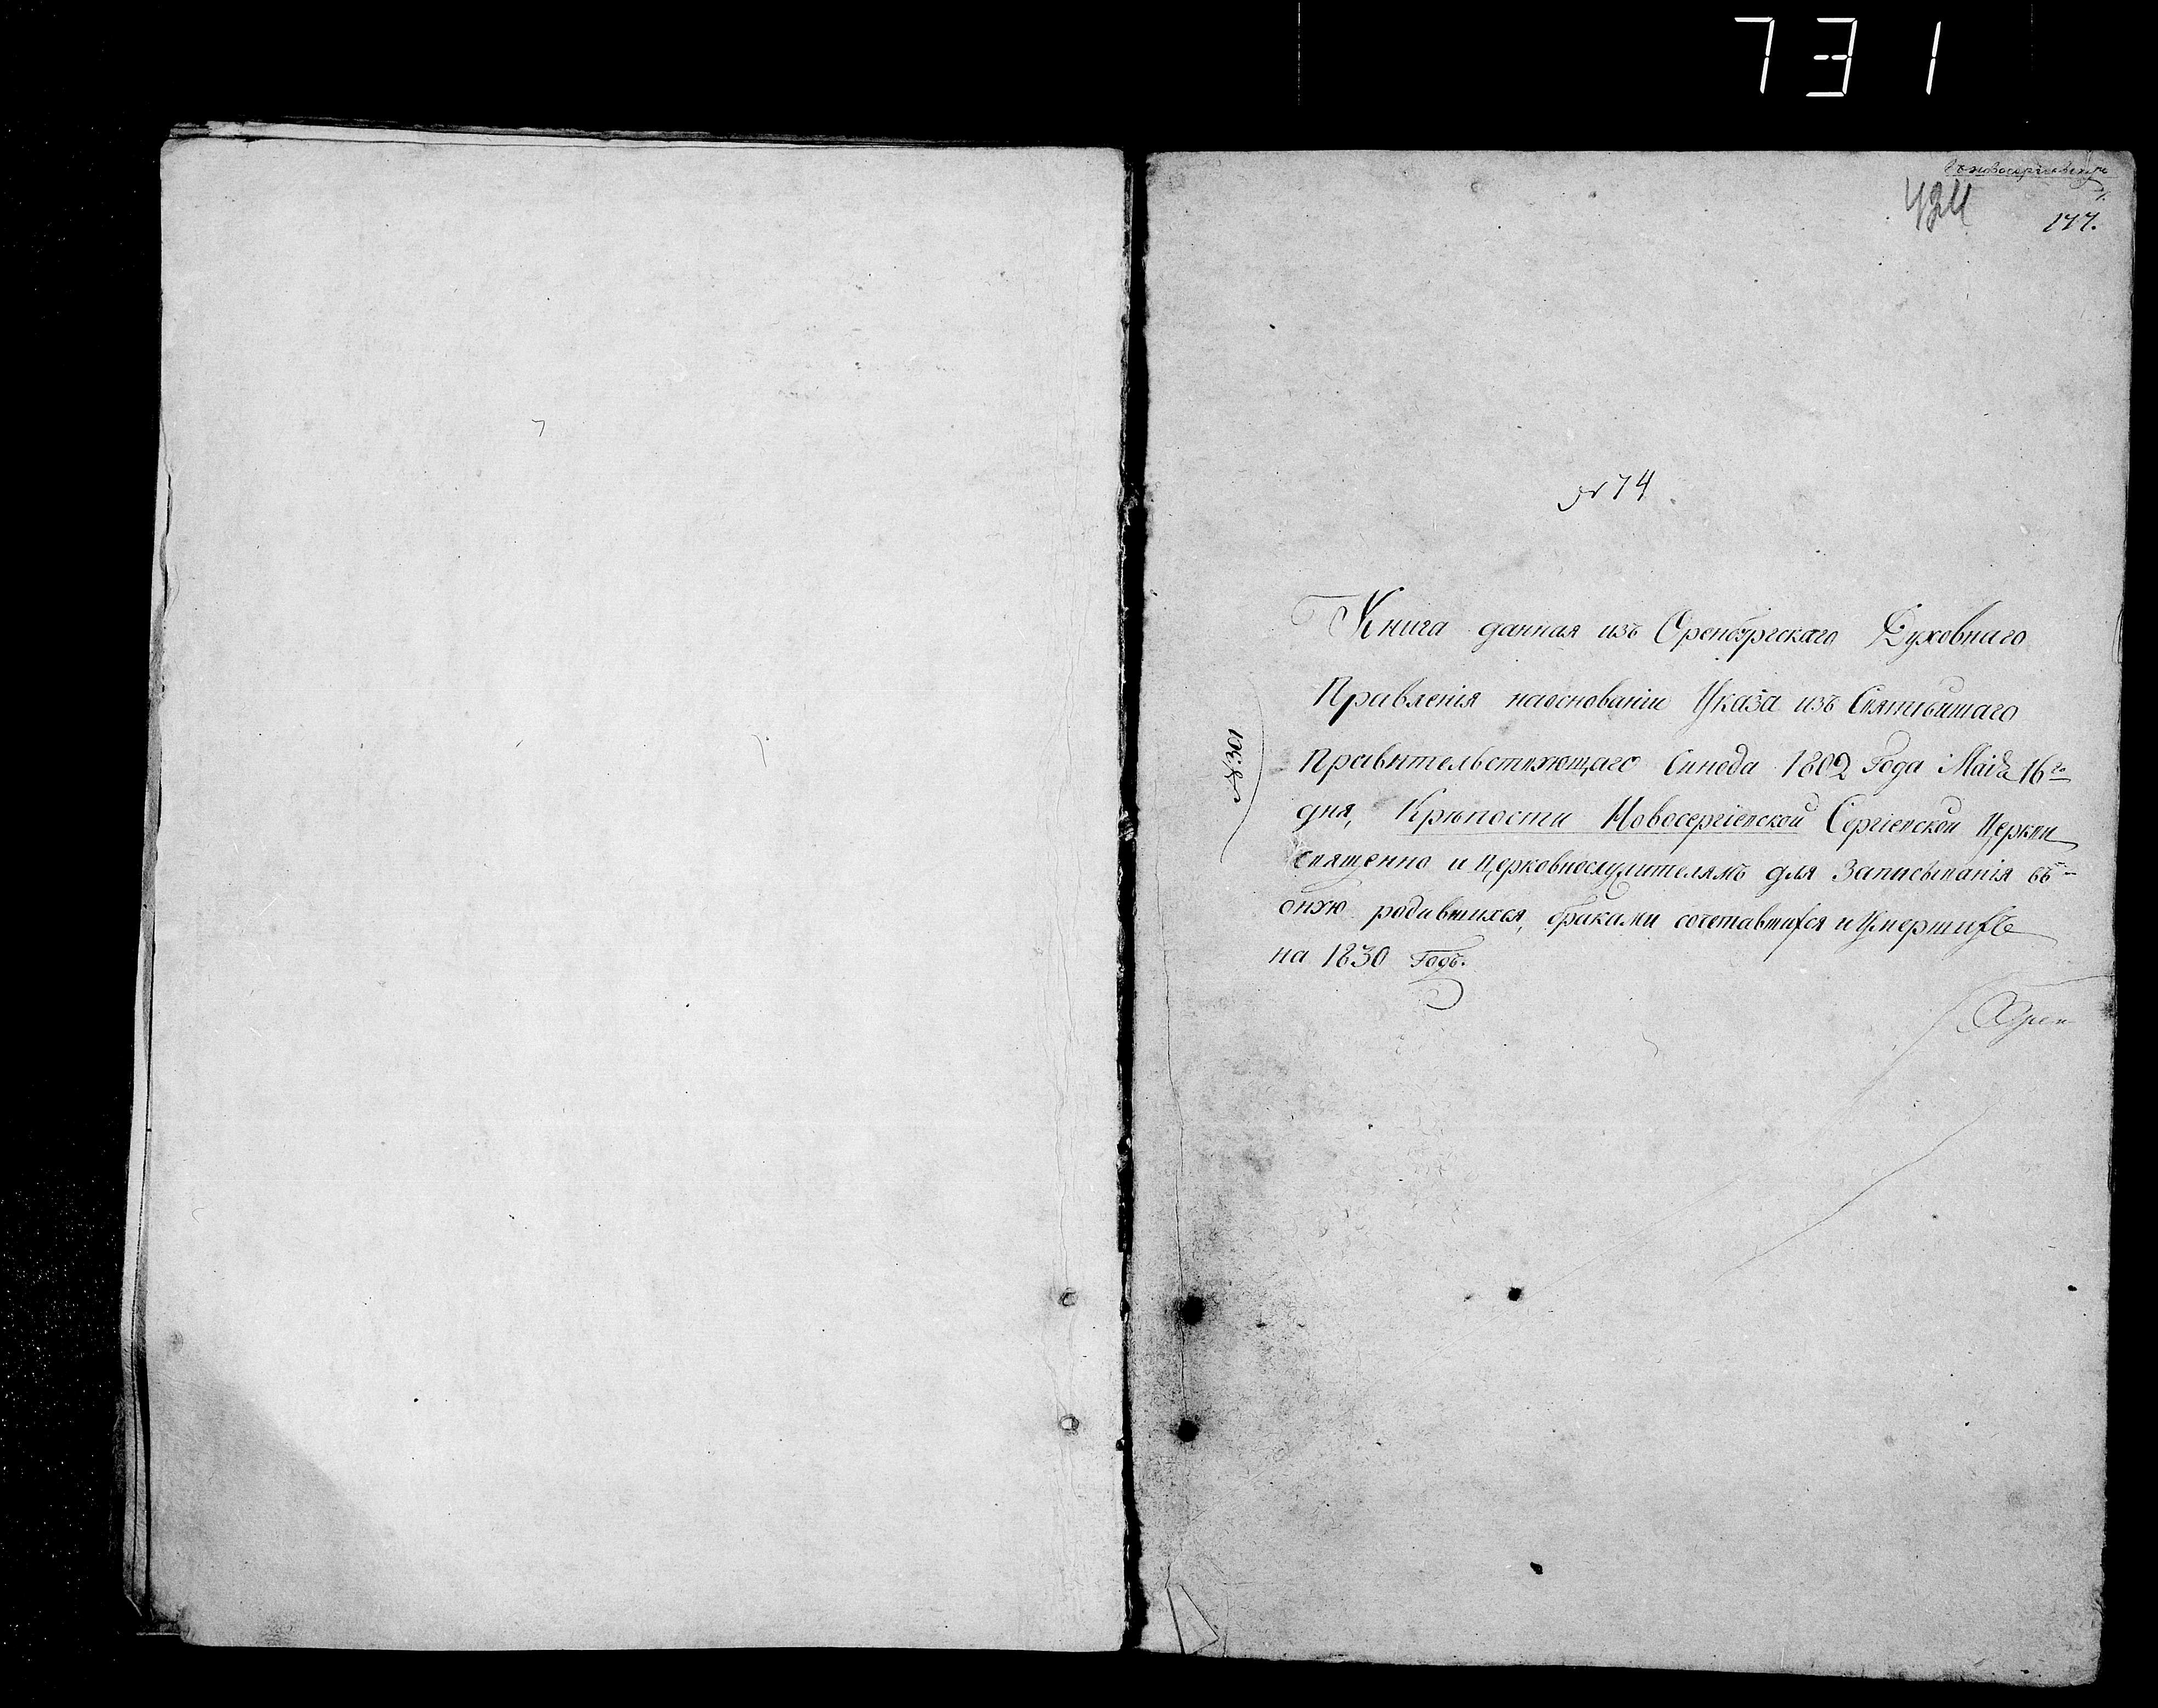 731
въ новосергіевскую
424
177.
№ 74
Книга данная изъ Оренбургскаго Духовнаго
Правленія наоснованіи Указа изъ Святѣйшаго
Правительствующаго Синода 1802 Года Маія 16го
дня, Крѣпости Новосергіевской Сергіевской Церкви
священно и Церковнослужителямъ для Записыванія въ
оную родившихся, браками сочетавшихся и Умершихъ
на 1830 Годъ.
№ 301